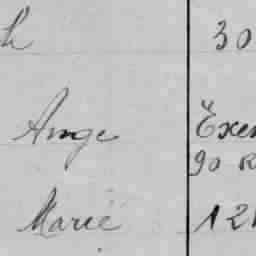 h 30
Ange Exem
90 R
Marie 121